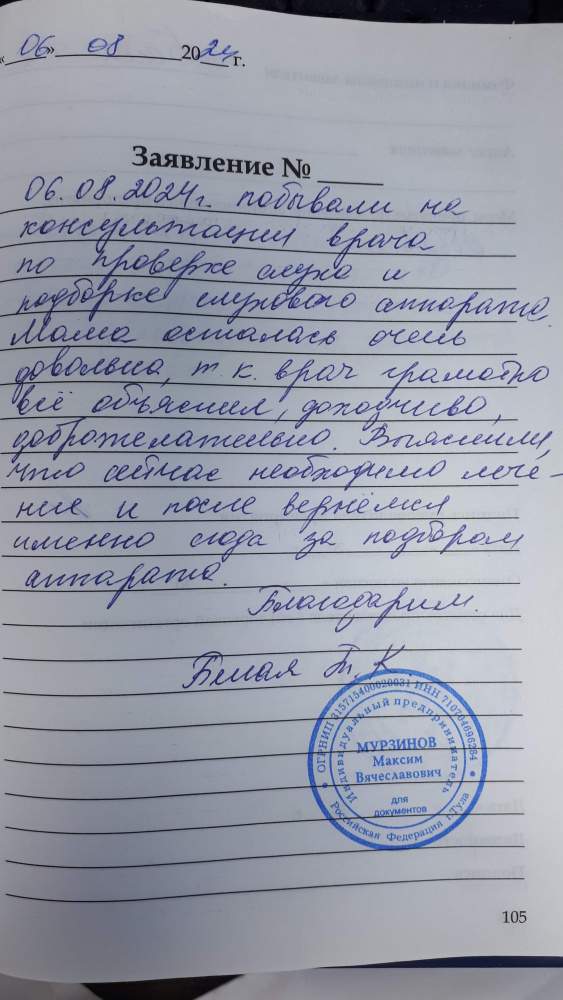 «06» 08 2024 г.
Заявление № ____
06.08.2024г. побывали на
консультации врача
по проверке слуха и
подборке слухового аппарата.
Мама осталась очень
довольна, т.к. врач грамотно
всё объяснил, доходчиво,
доброжелательно. Выяснили,
что сейчас необходимо лече-
ние и после вернёмся
именно сюда за подбором
аппарата.
Благодарим.
Белая Т. К.
ОГРНИП 315715400020031 ИНН 710704696284
Индивидуальный предприниматель
МУРЗИНОВ
Максим
Вячеславович
для
документов
Российская Федерация г.Тула
105